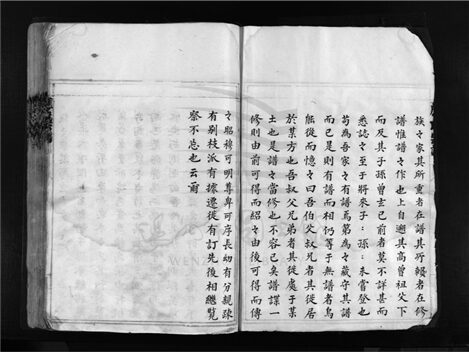 族々家其所重者在譜其所輕者在修
譜惟譜々作也上自遡其高曾祖父下
而及其子孫曾玄已前者莫不詳甚而
悉誌々至于將來子:孫:未嘗登也
苟為吾家々有譜焉第為々藏守其譜
而已是則有譜而相仍等于無譜者烏
能從而憶々曰吾伯父叔兄者其從居
於某方也吾叔父兄弟者其從處于某
土也是譜々當修也不容已矣譜謀一
修則由前可得而紹々由後可得而傳
々昭穆可明尊卑可序長幼有分親踈
有别枝派有據遷徙有訂先後相繼覧
察不忘也云爾